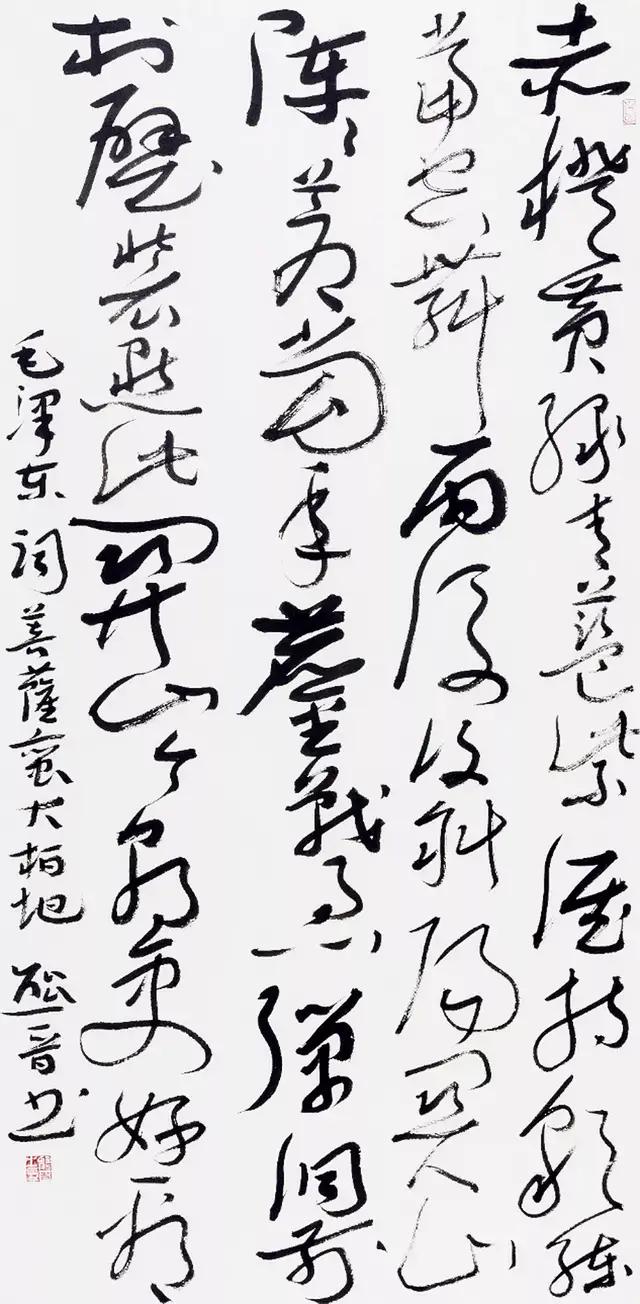 赤橙黄绿青蓝紫谁持彩练
当空舞雨後復斜阳关山
阵阵苍当年鏖战急弹洞前
村壁装点此关山今朝更好看
毛泽东词菩薩蛮大柏地 晋书